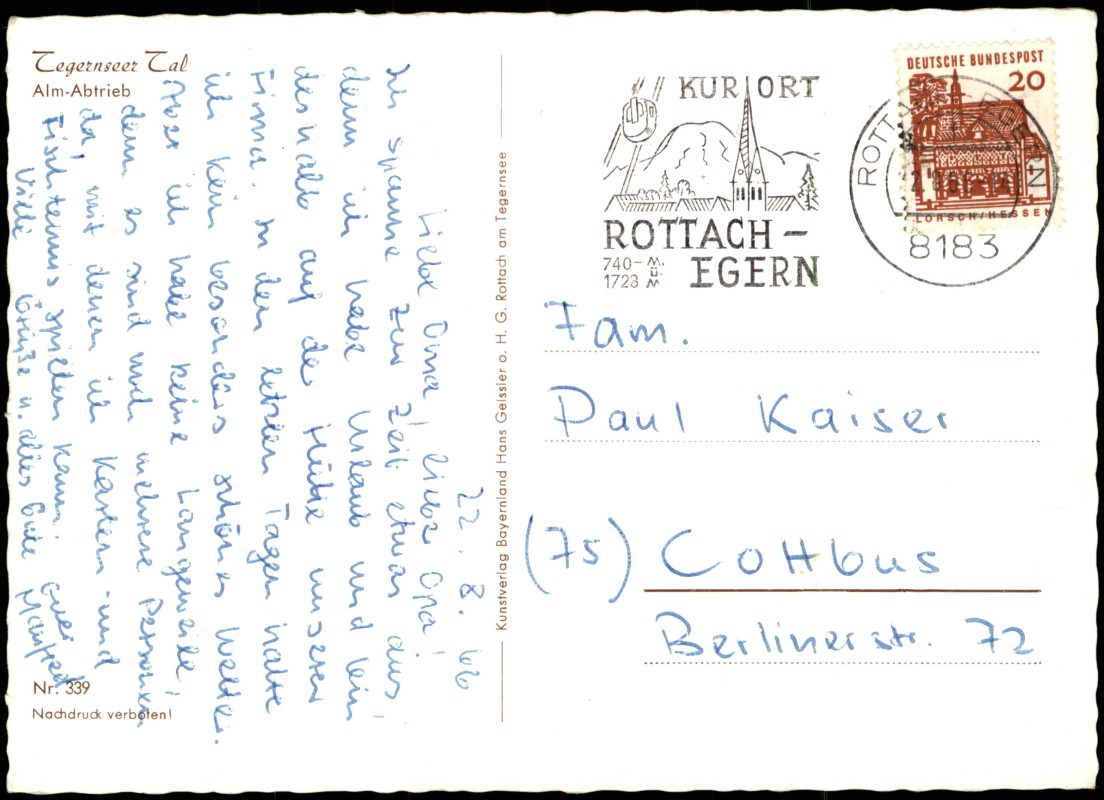 Tegernseer Tal
Alm-Abtrieb
22. 8. 66
Liebe Oma, lieber Opa!
Ich spanne zur Zeit etwas aus,
denn ich habe Urlaub und bin
deshalb auf der Hütte unserer
Firma. In den letzten Tagen hatte
ich kein besonders schönes Wetter.
Aber ich habe keine Langeweile,
denn es sind noch mehrere Personen
da, mit denen ich Karten- und
Tischtennis spielen kann.
Viele Grüße u. alles Gute Euer
Manfred
Nr. 339
Nachdruck verboten!
Kunstverlag Bayernland Hans Geissler o. H. G. Rottach am Tegernsee
KURORT
ROTTACH-
EGERN
740-
1723
M.
U.
M
DEUTSCHE BUNDESPOST
20
LORSCH/HESSEN
ROTTACH-EGERN
8183
Fam.
Paul Kaiser
(75) Cottbus
Berlinerstr. 72